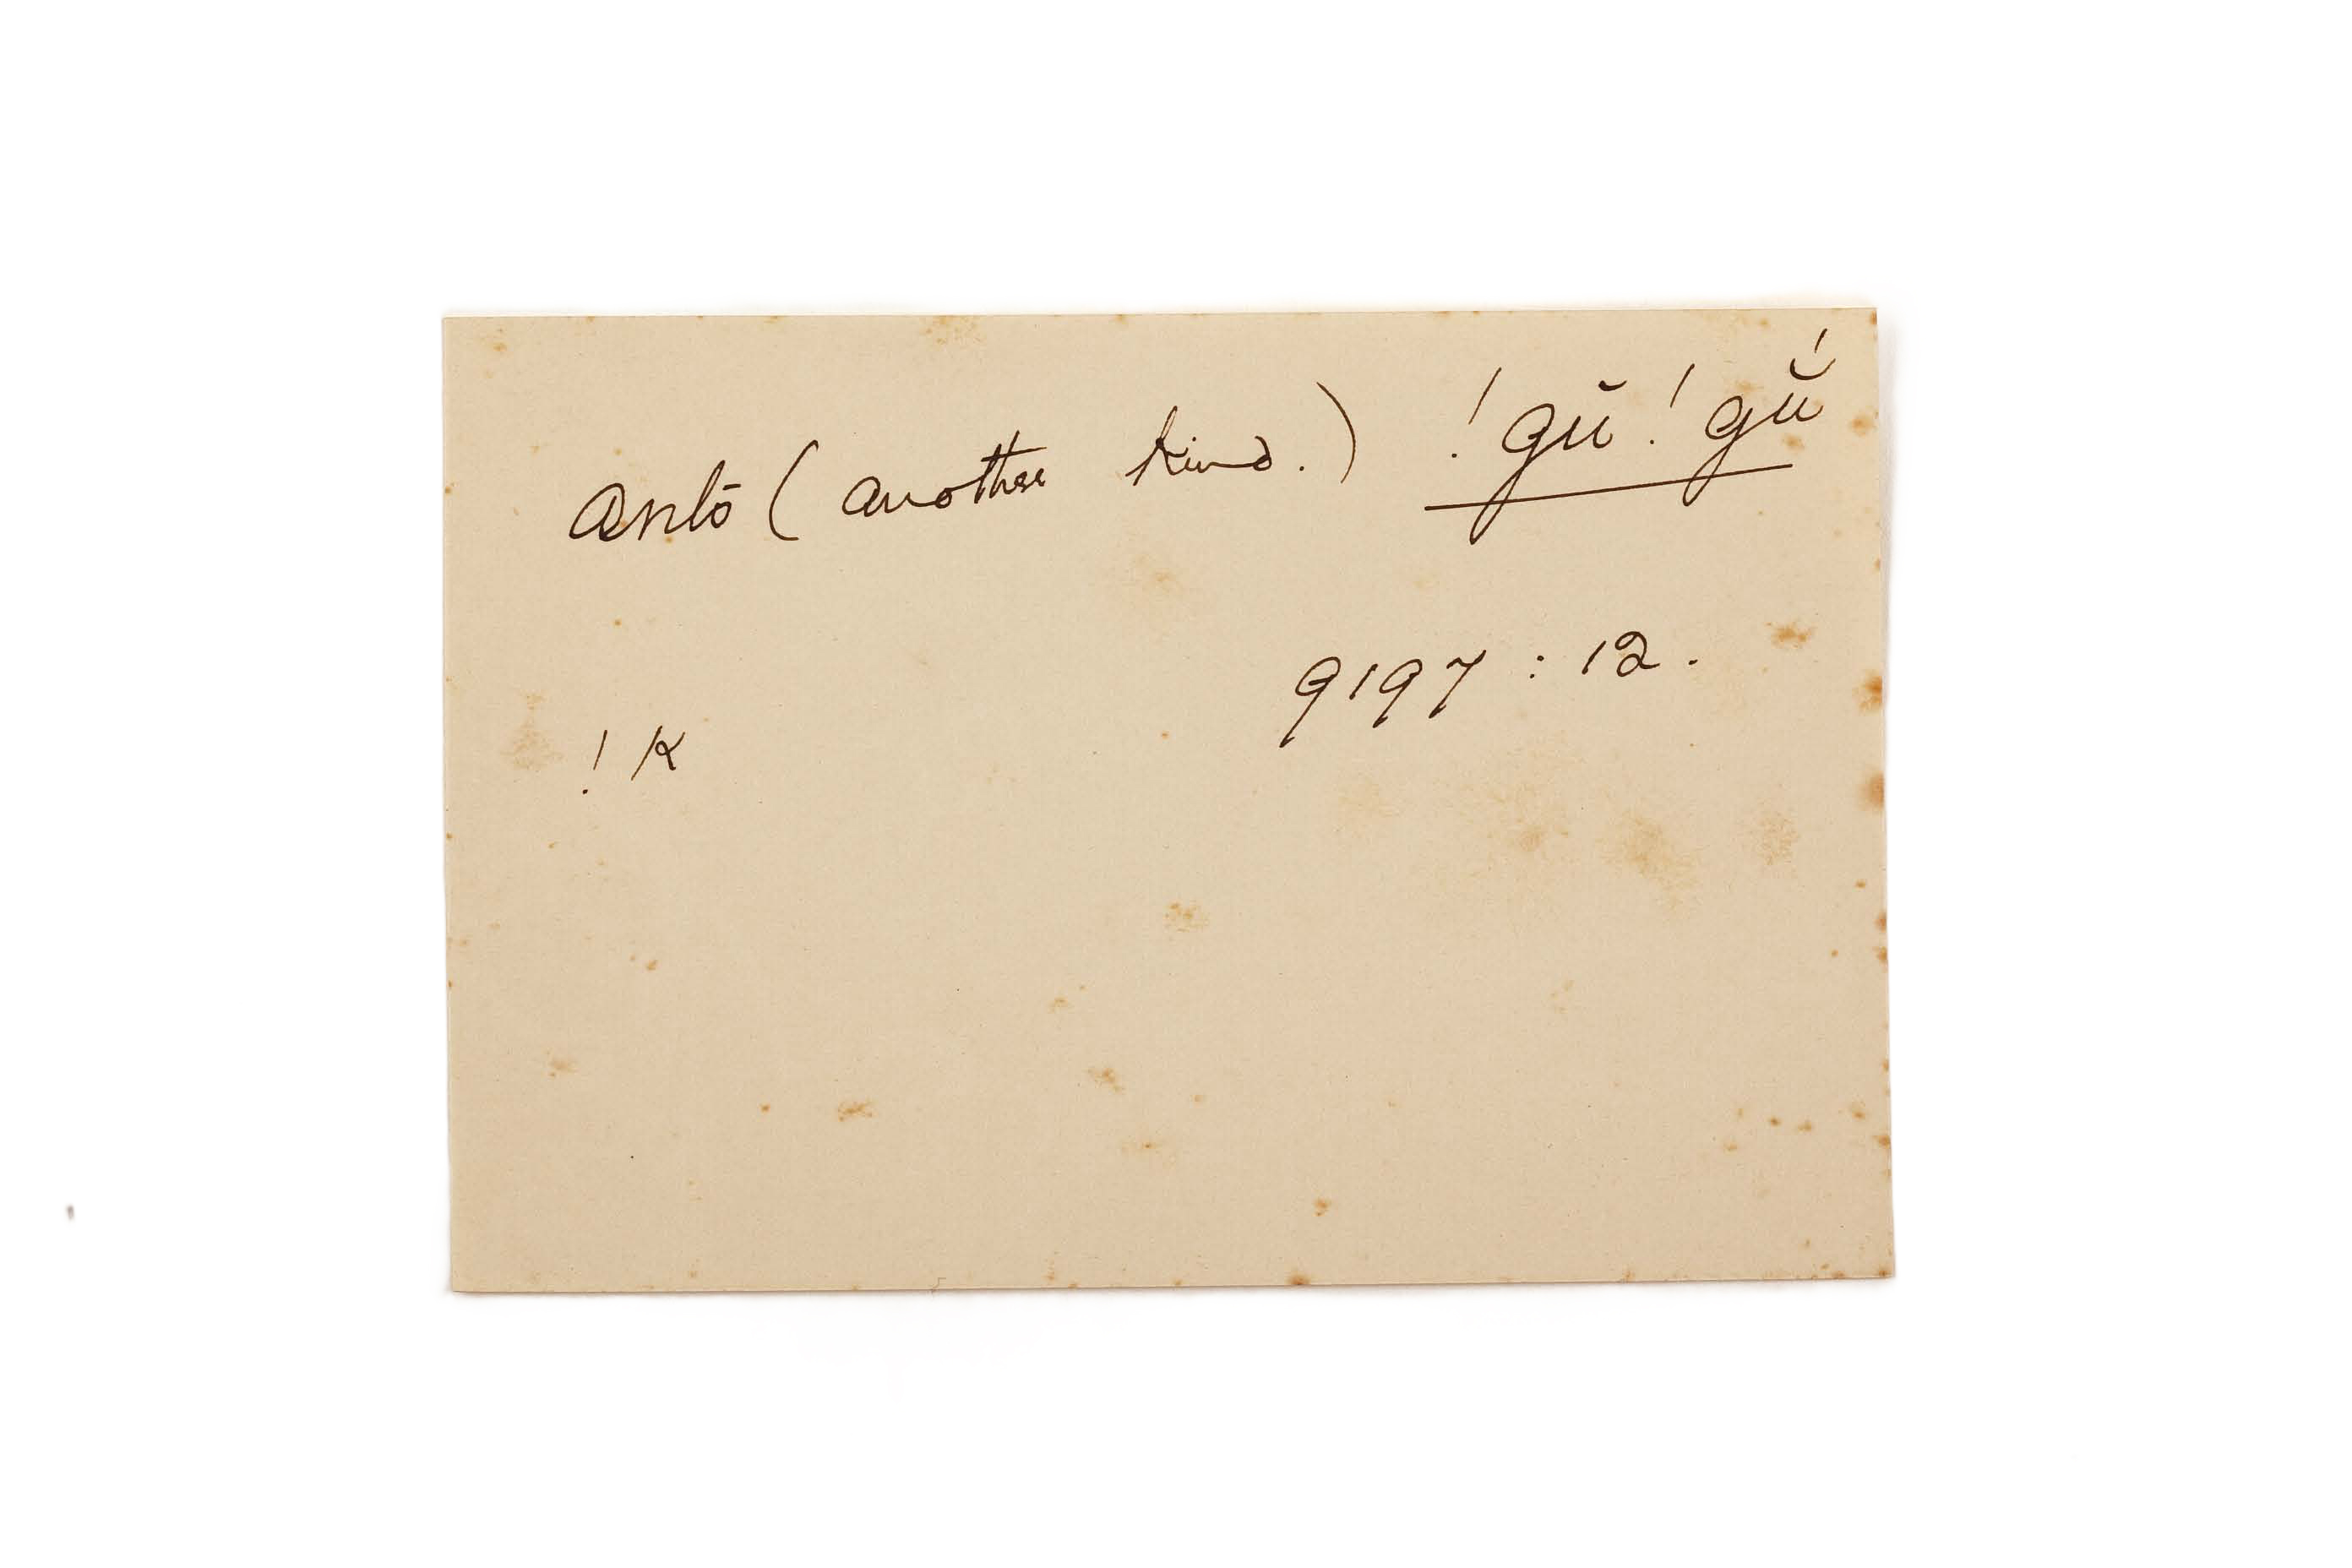 ants (another kind.) !gŭ!gŭ́
9197 : 12.
!K